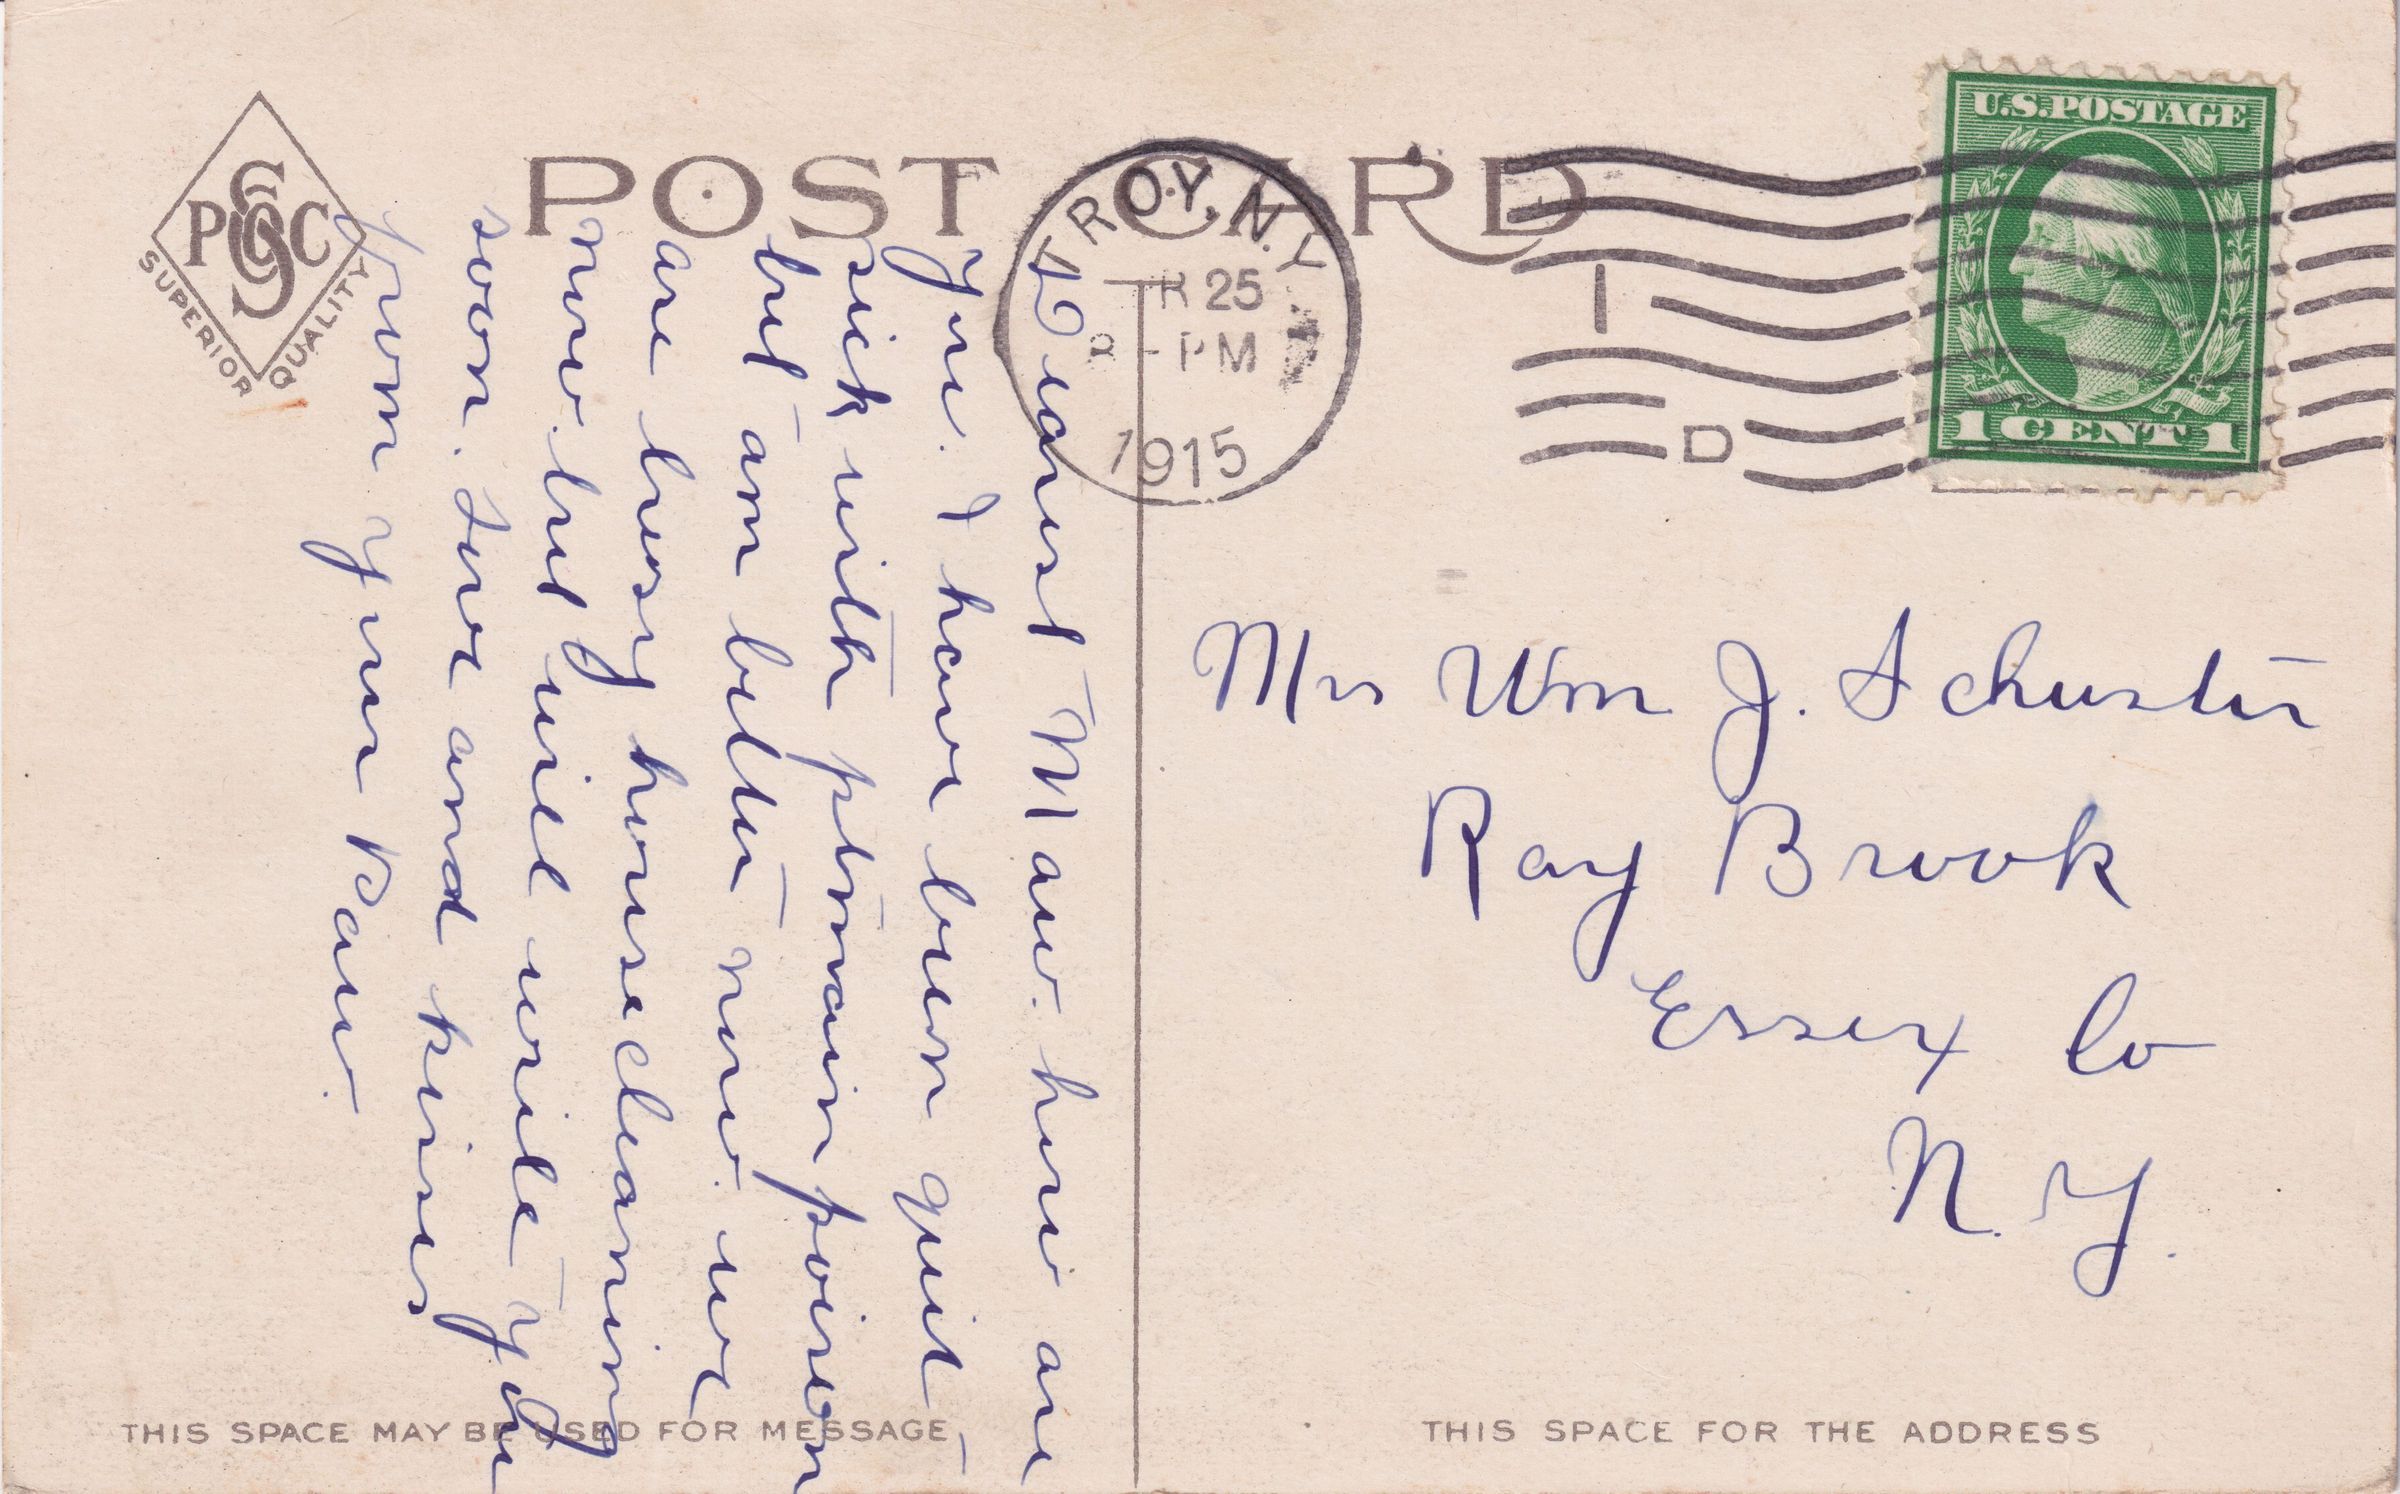 POST CARD
PSC
SUPERIOR QUALITY
TROY, N.Y.
R 25
- PM
1915
1
D
U.S. POSTAGE
1 CENT 1
Dearest Maw. how are
you. I have been quit
sick with ptmain poison
but am better now. we
are busy housecleaning
now. but will write you
soon. Love and kisses
from your Paw.
Mrs Wm J. Schuster
Ray Brook
Essex Co
N. Y.
THIS SPACE MAY BE USED FOR MESSAGE
THIS SPACE FOR THE ADDRESS